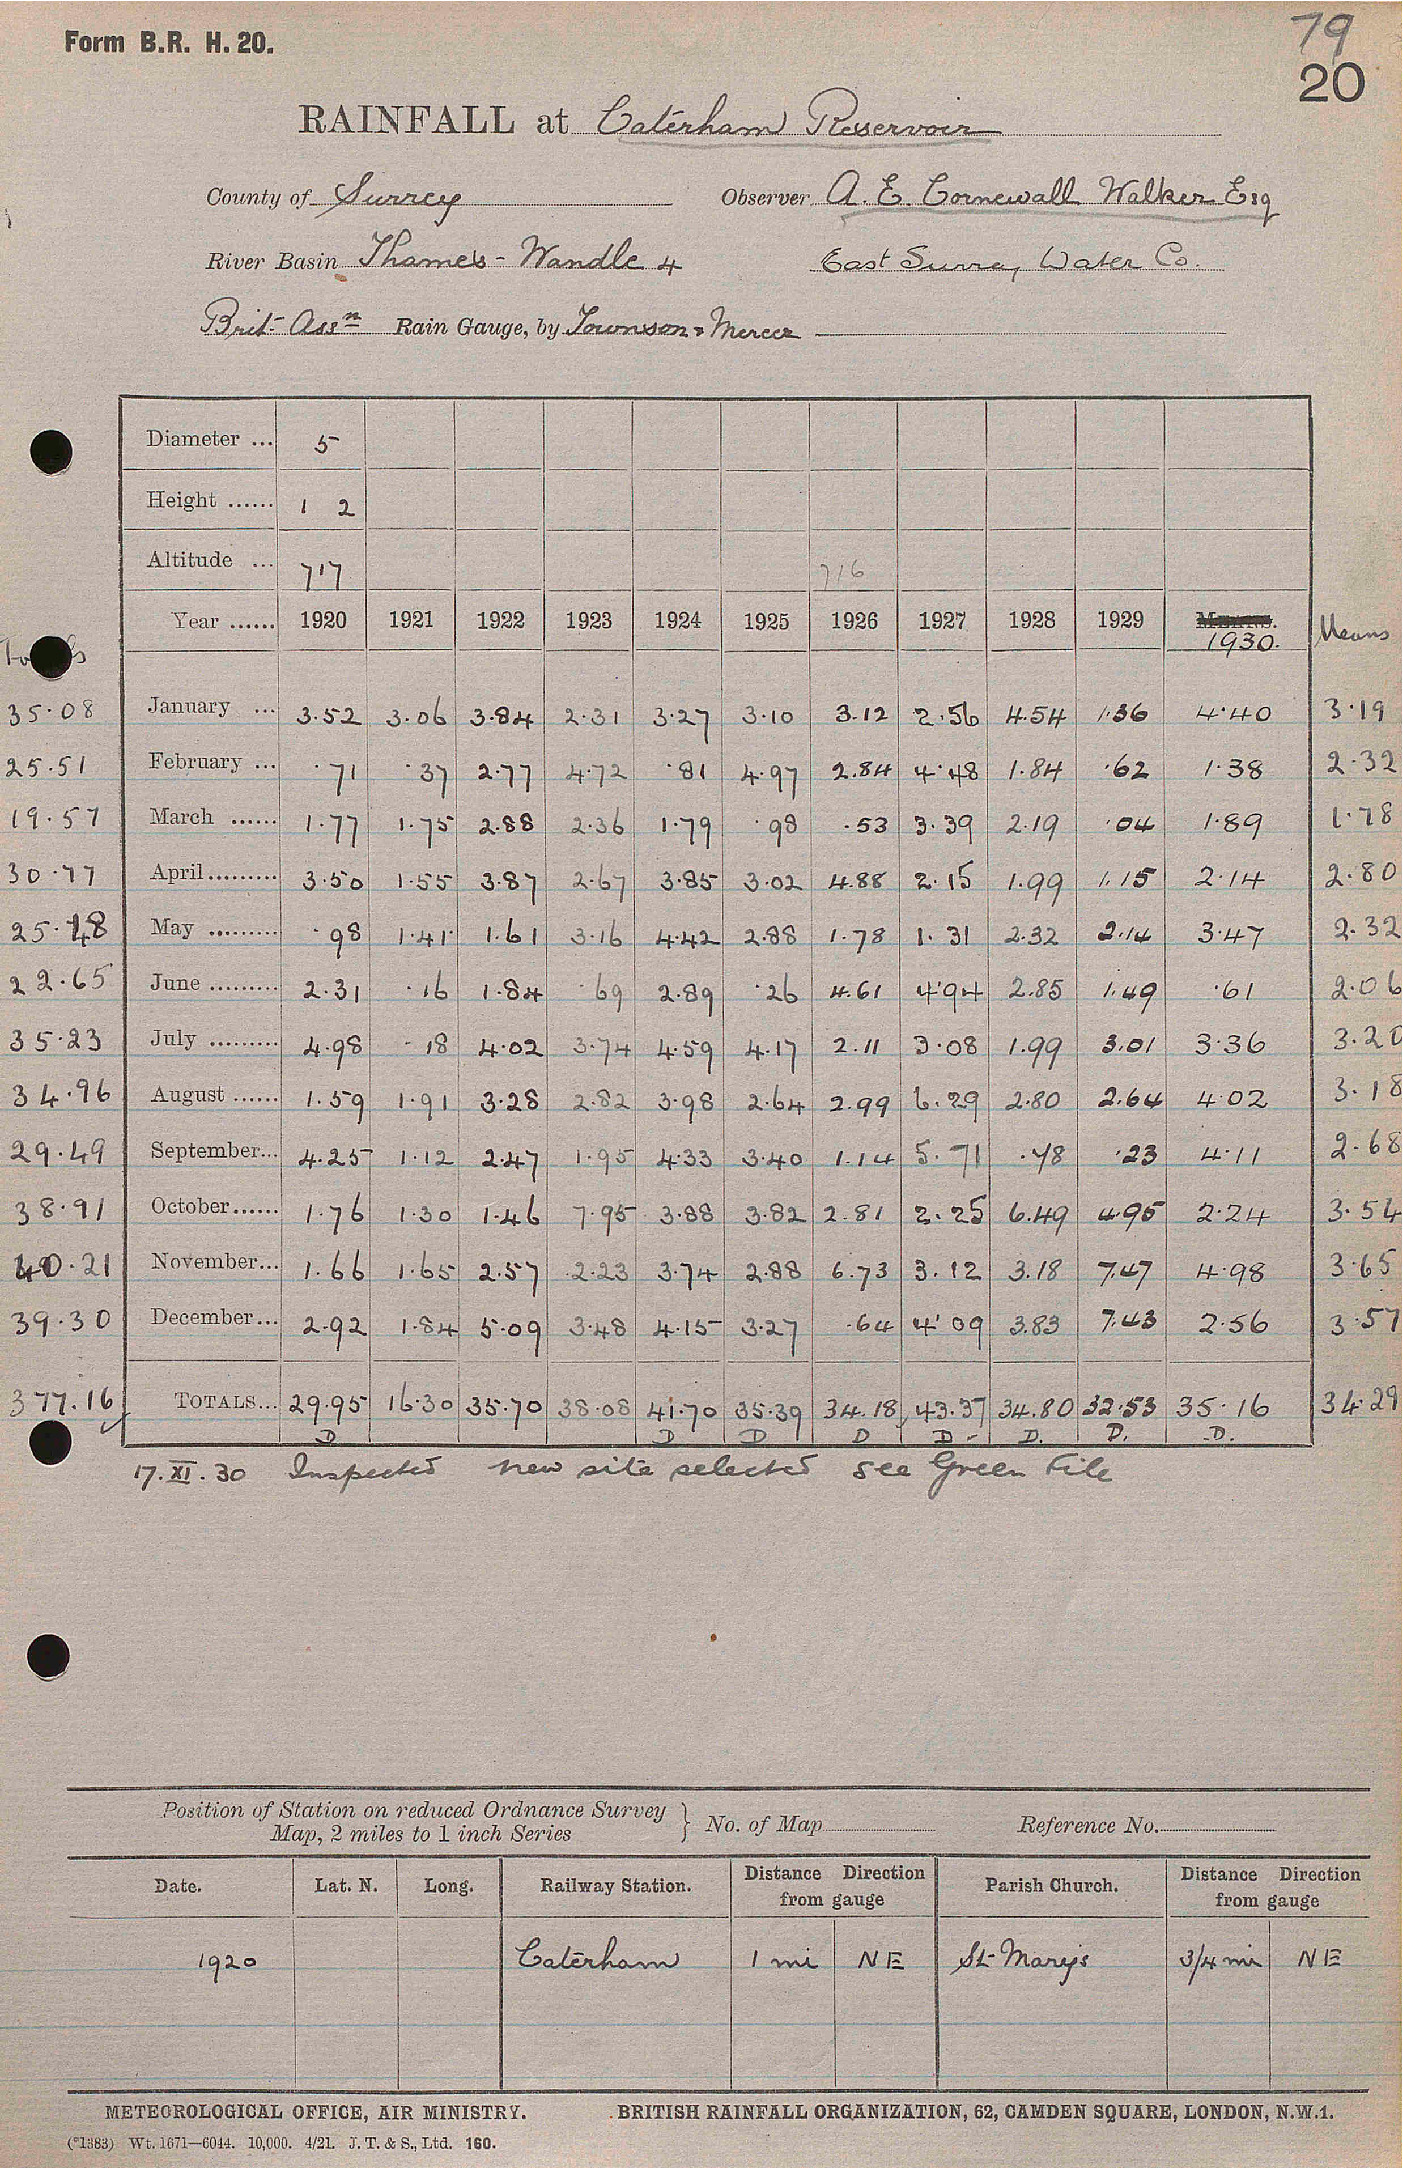 79
Form B.R. H. 20.
20
RAINFALL at Caterham Reservoir
County of Surrey Observer A. E. Cornewall Walker Esq
River Basin Thames - Wandle 4 East Surrey Water Co.
Brit. Assn Rain Gauge, by Townson & Mercer
Diameter ... 5
Height ...... 1 2
Altitude ... 717 716
Year ...... 1920 1921 1922 1923 1924 1925 1926 1927 1928 1929 1930. Means
35.08 January ... 3.52 3.06 3.84 2.31 3.27 3.10 3.12 2.56 4.54 1.36 4.40 3.19
25.51 February ... .71 .37 2.77 4.72 .81 4.97 2.84 4.48 1.84 .62 1.38 2.32
19.57 March ...... 1.77 1.75 2.88 2.36 1.79 .98 .53 3.39 2.19 .04 1.89 1.78
30.77 April......... 3.50 1.55 3.87 2.67 3.85 3.02 4.88 2.15 1.99 1.15 2.14 2.80
25.48 May ......... .98 1.41 1.61 3.16 4.42 2.88 1.78 1.31 2.32 2.14 3.47 2.32
22.65 June ......... 2.31 .16 1.84 .69 2.89 .26 4.61 4.94 2.85 1.49 .61 2.06
35.23 July ......... 4.98 .18 4.02 3.74 4.59 4.17 2.11 3.08 1.99 3.01 3.36 3.20
34.96 August ...... 1.59 1.91 3.28 2.82 3.98 2.64 2.99 6.29 2.80 2.64 4.02 3.18
29.49 September... 4.25 1.12 2.47 1.95 4.33 3.40 1.14 5.71 .78 .23 4.11 2.68
38.91 October...... 1.76 1.30 1.46 7.95 3.88 3.82 2.81 2.25 6.49 4.95 2.24 3.54
40.21 November... 1.66 1.65 2.57 2.23 3.74 2.88 6.73 3.12 3.18 7.47 4.98 3.65
39.30 December... 2.92 1.84 5.09 3.48 4.15 3.27 .64 4.09 3.83 7.43 2.56 3.57
377.16 TOTALS... 29.95 16.30 35.70 38.08 41.70 35.39 34.18 43.37 34.80 32.53 35.16 34.29
D D D D D - D. D. D.
17.XI.30 Inspected new site selected see Green File
Position of Station on reduced Ordnance Survey
Map, 2 miles to 1 inch Series } No. of Map Reference No.
Date. Lat. N. Long. Railway Station. Distance Direction from gauge Parish Church. Distance Direction from gauge
1920 Caterham 1 mi NE St Mary's 3/4 mi NE
METEOROLOGICAL OFFICE, AIR MINISTRY. BRITISH RAINFALL ORGANIZATION, 62, CAMDEN SQUARE, LONDON, N.W.1.
(*1383) Wt. 1671—6044. 10,000. 4/21. J. T. & S., Ltd. 160.